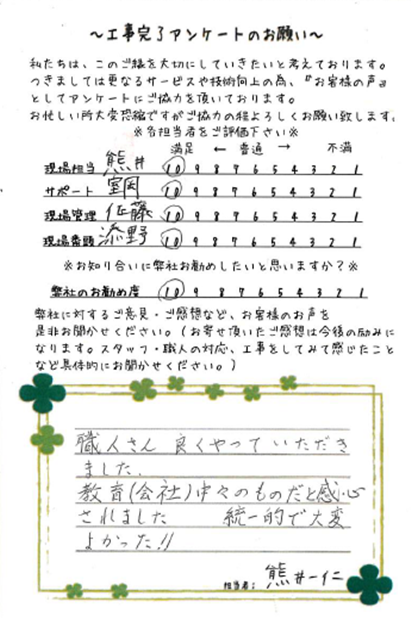 ～工事完了アンケートのお願い～
私たちは、このご縁を大切にしていきたいと考えております。
つきましては更なるサービスや技術向上の為、『お客様の声』
としてアンケートにご協力を頂いております。
お忙しい所大変恐縮ですがご協力の程よろしくお願い致します。
※各担当者をご評価下さい※
満足 ← 普通 → 不満
現場担当 熊井 10 9 8 7 6 5 4 3 2 1
サポート 室岡 10 9 8 7 6 5 4 3 2 1
現場管理 佐藤 10 9 8 7 6 5 4 3 2 1
現場番頭 添野 10 9 8 7 6 5 4 3 2 1
※お知り合いに弊社お勧めしたいと思いますか？※
弊社のお勧め度 10 9 8 7 6 5 4 3 2 1
弊社に対するご意見・ご感想など、お客様のお声を
是非お聞かせください。（お寄せ頂いたご感想は今後の励みに
なります。スタッフ・職人の対応、工事をしてみて感じたこと
など具体的にお聞かせください。）
職人さん 良くやっていただき
ました.
教育(会社)中々のものだと感心
されました 統一的で大変
よかった!!
担当者： 熊井一仁